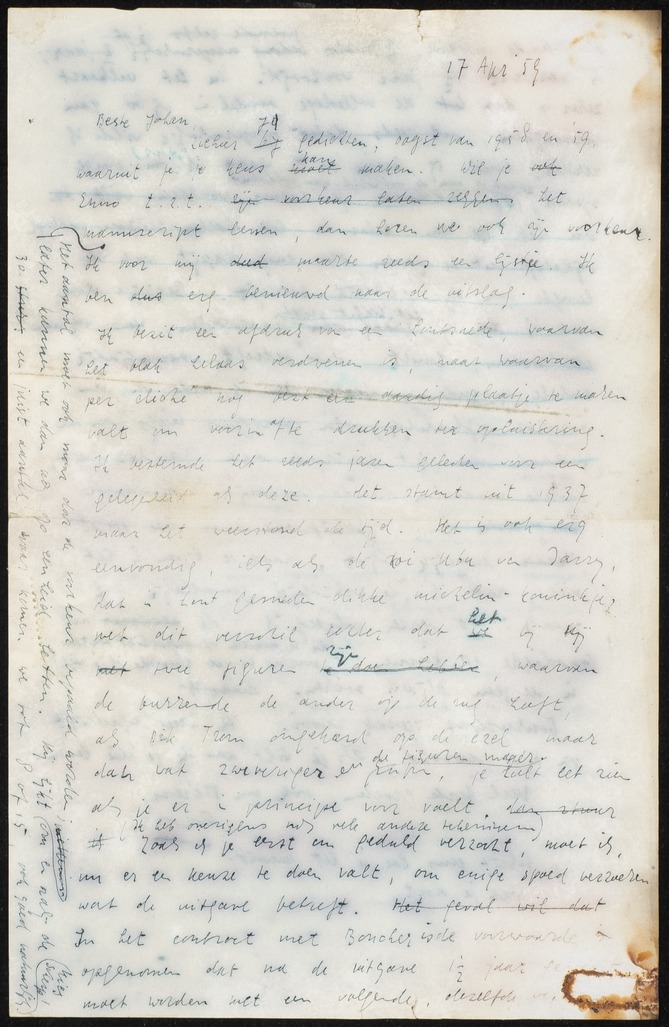 17 Apr '59
Beste Johan
Hier 79 gedichten, oogst van 1958 en '59,
waaruit je je keus kan maken. Wil je ook
Enno t.z.t. zijn voorkeur laten zeggen. het
manuscript lezen, dan horen we ook zijn voorkeur.
Ik voor mij had maakte reeds een lijstje. Ik
ben dus erg benieuwd naar de uitslag.
Ik bezit een afdruk van een houtsnede, waarvan
het blok helaas verdwenen is, maar waarvan
per cliché nog best een aardig plaatje te maken
valt om voorin af te drukken ter opluistering.
Ik bestemde het reeds jaren geleden voor een
gelegenheid als deze. Het stamt uit 1937
maar het weerstond de tijd. Het is ook erg
eenvoudig, iets als de roi Ubu van Jarry,
dat in hout gesneden dikke michelin-koninkje,
met dit verschil echter dat het bij mij
met twee figuren zijn, waarvan
de turrende de ander op de rug heeft,
als Dik Trom omgekeerd op de ezel maar
dan wat zweveriger en de figuren mager. je zult het zien
als je er in principe voor voelt. dan stuur
(Ik heb overigens nog vele andere tekeningen)
Zoals ik je eerst om geduld verzocht, moet ik,
nu er een keuze te doen valt, om enige spoed verzoeken
wat de uitgave betreft. Het geval wil dat
In het contract met Boucher is de voorwaarde
opgenomen dat na de uitgave 1½ jaar
moet worden met een volgende, dezelfde
Het aantal moet ook maar door de voorkeur bepaald worden
later kunnen we dan nog op eenheid letten. Mij lijkt (om en nabij de
30 een juist aantal, maar komen we tot 8 of 15, ook goed natuurlijk)